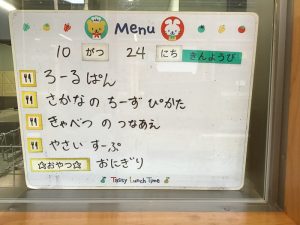 Menu
10 がつ 24 にち きんようび
ろーる ぱん
さかな の ちーず ぴかた
きゃべつ の つなあえ
やさい すーぷ
☆おやつ☆ おにぎり
Tasty Lunch Time